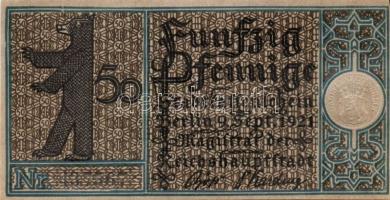 50
Funfzig
Pfennige
Berlin 9. Sept. 1921
Magistrat der
Reichshauptstadt
Nr.